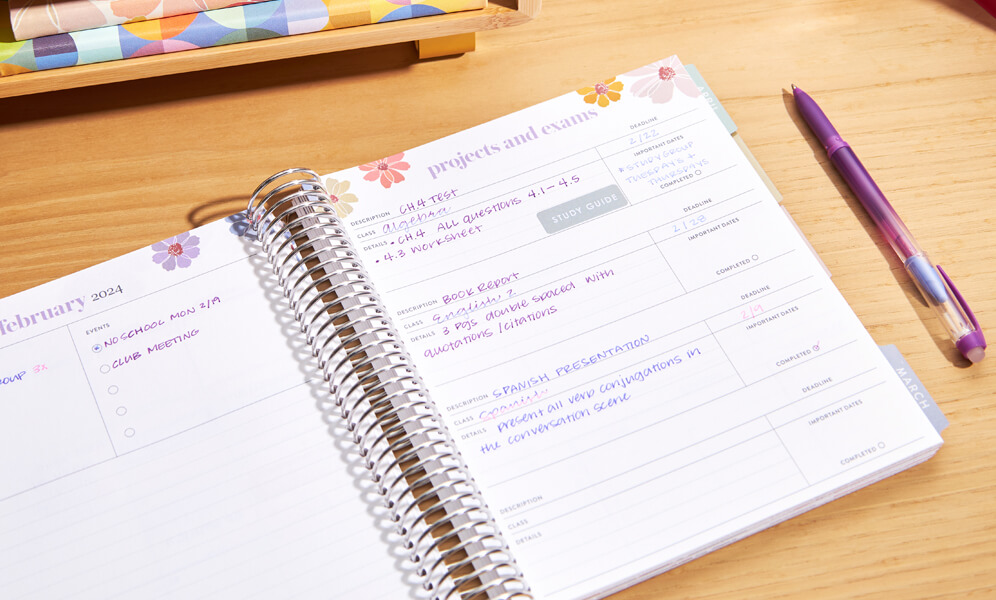 february 2024
EVENTS
NO SCHOOL MON 2/19
CLUB MEETING
OUP 3x
projects and exams
DESCRIPTION CH.4 TEST
CLASS algebra
DETAILS • CH.4 ALL questions 4.1-4.5
• 4.3 WORKSHEET
STUDY GUIDE
DEADLINE
2/22
IMPORTANT DATES
* STUDY GROUP
TUESDAYS +
THURSDAYS
COMPLETED
DESCRIPTION BOOK REPORT
CLASS English 2
DETAILS 3 pgs double spaced with
quotations/citations
DEADLINE
2/28
IMPORTANT DATES
COMPLETED
DESCRIPTION SPANISH PRESENTATION
CLASS Spanish
DETAILS Present all verb conjugations in
the conversation scene
DEADLINE
2/9
IMPORTANT DATES
COMPLETED
DESCRIPTION
CLASS
DETAILS
DEADLINE
IMPORTANT DATES
COMPLETED
MARCH